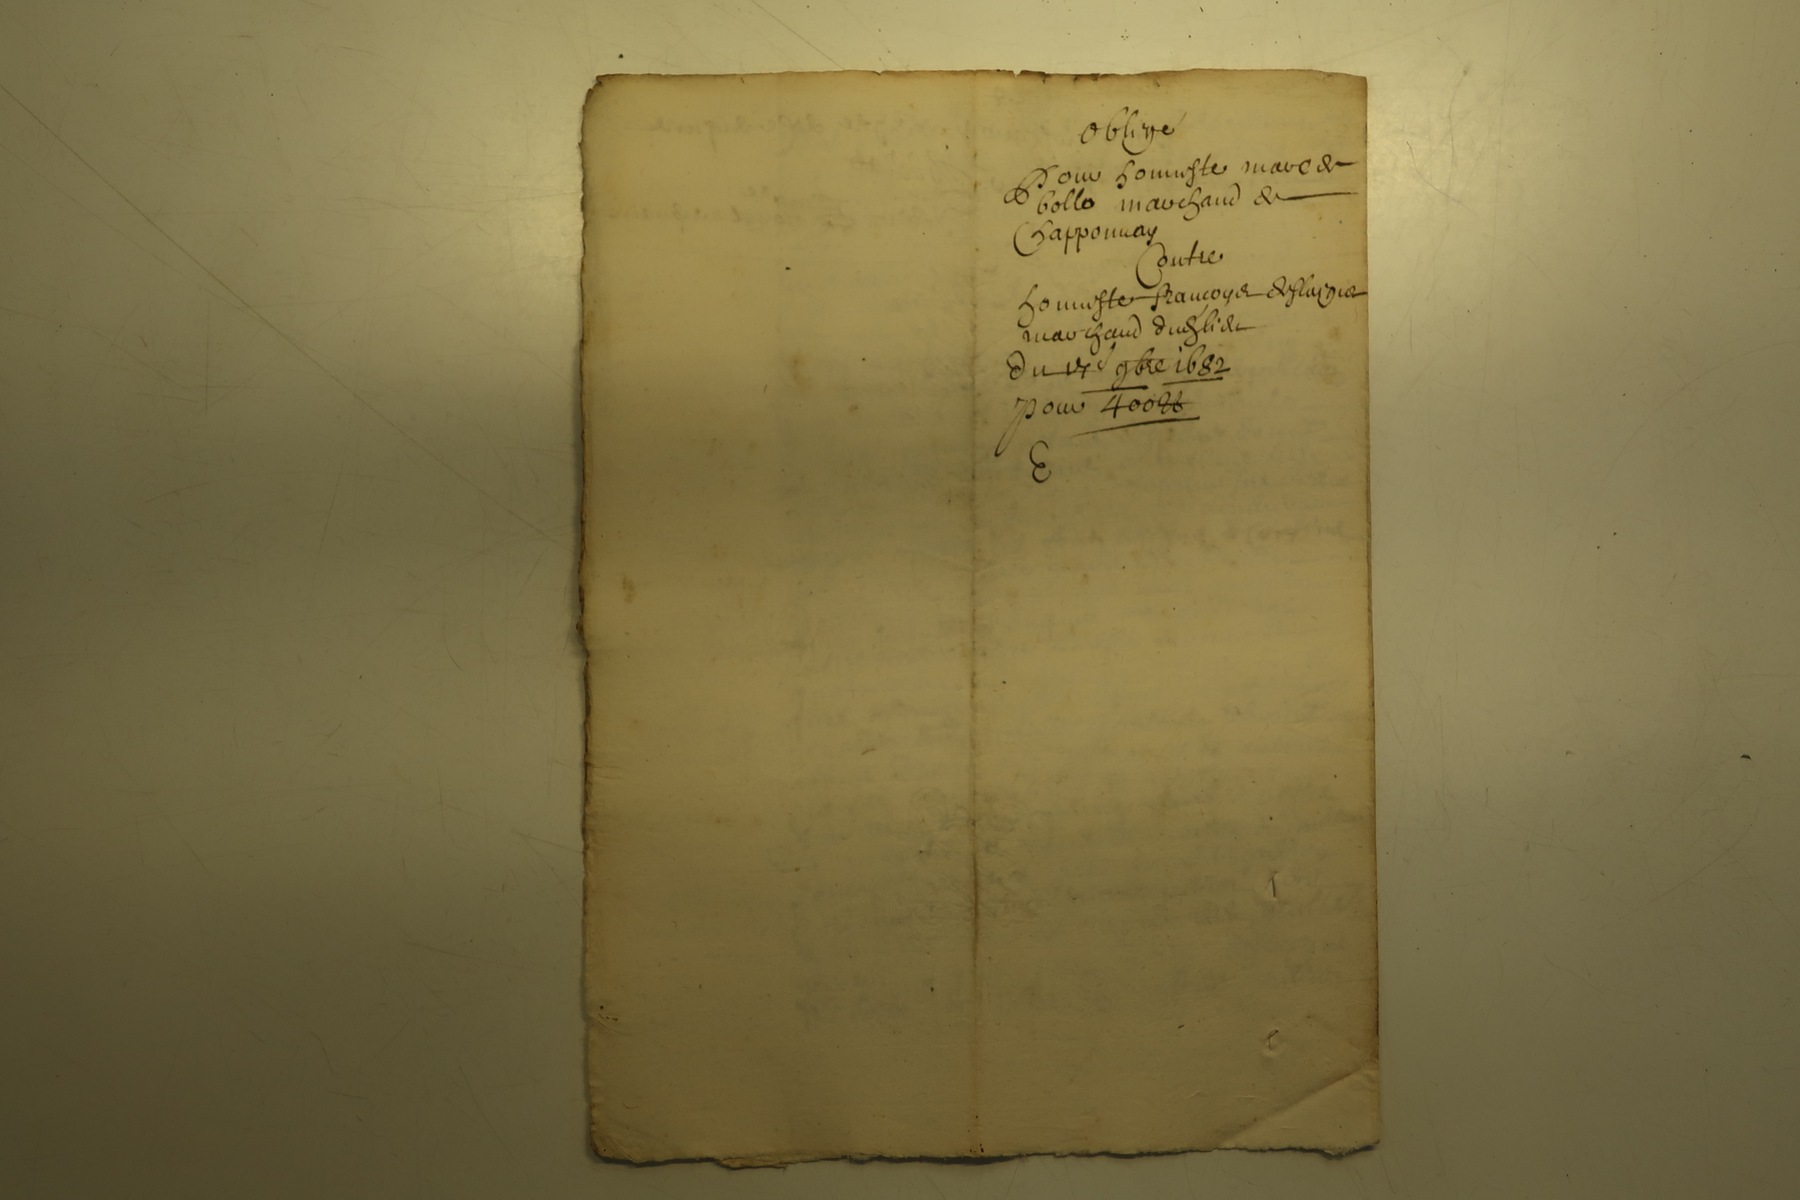 Oblige
Pour honneste marc de
bollo marchand de
Chapponnay
Contre
honneste françoys
marchand
du 17e 9bre 1682
pour 400 ₶
E